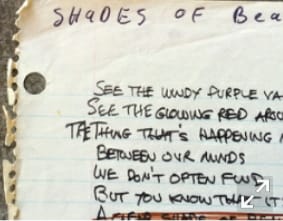 SHADES OF Bea
SEE THE WINDY PURPLE VA
SEE THE GLOWING RED AROU
THE THING THAT'S HAPPENING
BETWEEN OUR MINDS
WE DON'T OFTEN FIND
BUT YOU KNOW THAT IT
A